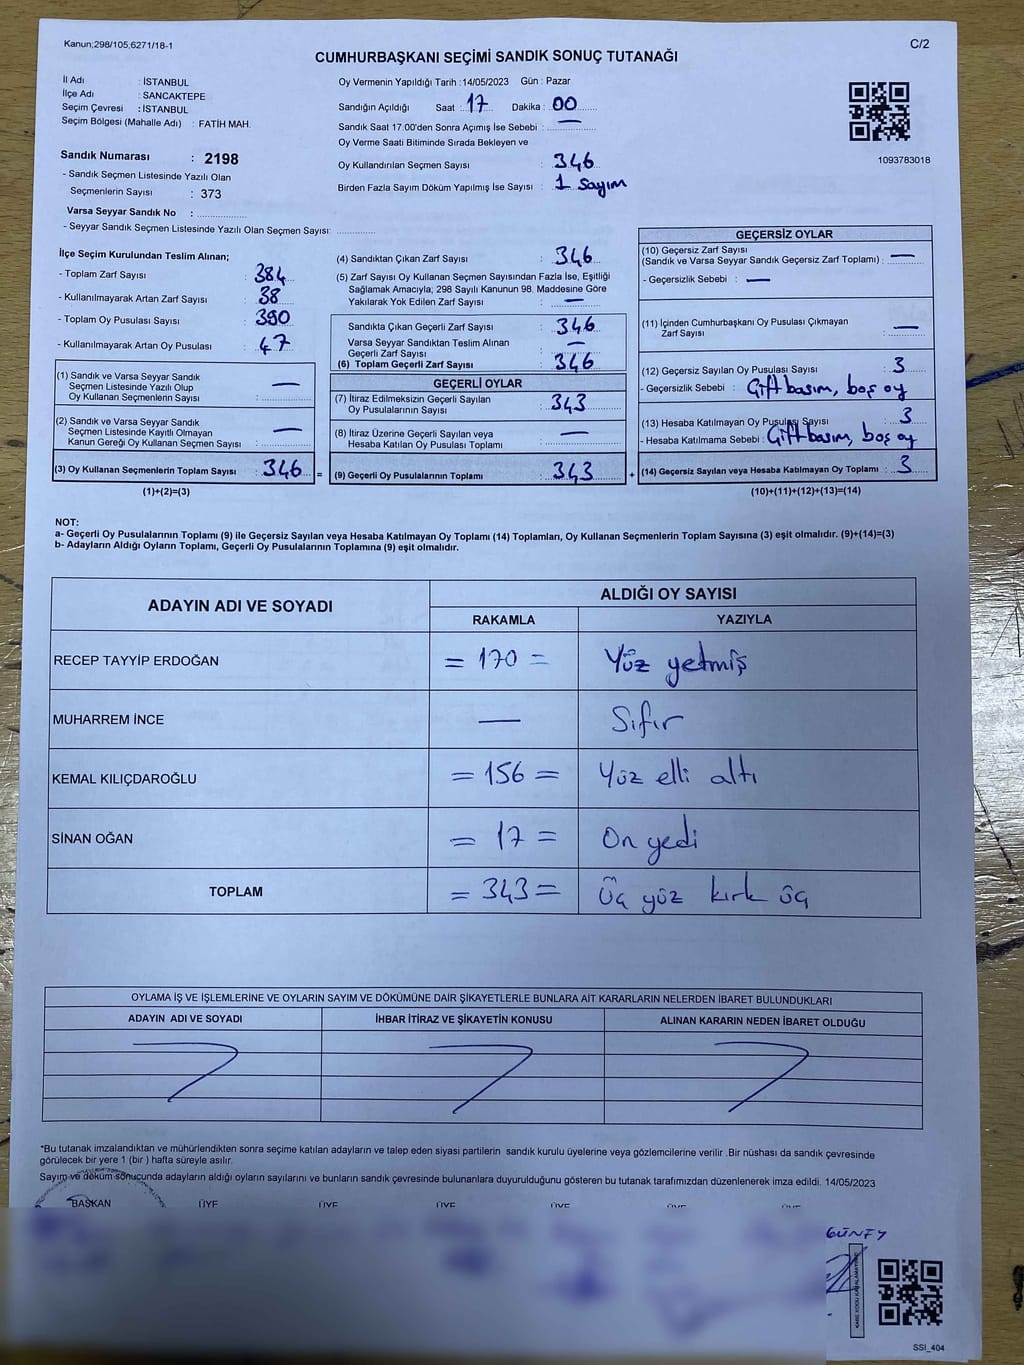 Kanun;298/105,6271/18-1
C/2
CUMHURBAŞKANI SEÇİMİ SANDIK SONUÇ TUTANAĞI
İl Adı : İSTANBUL
İlçe Adı : SANCAKTEPE
Seçim Çevresi : İSTANBUL
Seçim Bölgesi (Mahalle Adı) : FATİH MAH.
Sandık Numarası : 2198
- Sandık Seçmen Listesinde Yazılı Olan
Seçmenlerin Sayısı : 373
Varsa Seyyar Sandık No : ..............
- Seyyar Sandık Seçmen Listesinde Yazılı Olan Seçmen Sayısı: ............
Oy Vermenin Yapıldığı Tarih :14/05/2023 Gün : Pazar
Sandığın Açıldığı Saat : 17 Dakika : 00
Sandık Saat 17:00'den Sonra Açımış İse Sebebi : —
Oy Verme Saati Bitiminde Sırada Bekleyen ve
Oy Kullandırılan Seçmen Sayısı : 346
Birden Fazla Sayım Döküm Yapılmış İse Sayısı : 1 Sayım
1093783018
İlçe Seçim Kurulundan Teslim Alınan;
- Toplam Zarf Sayısı : 384
- Kullanılmayarak Artan Zarf Sayısı : 38
- Toplam Oy Pusulası Sayısı : 390
- Kullanılmayarak Artan Oy Pusulası : 47
(1) Sandık ve Varsa Seyyar Sandık
Seçmen Listesinde Yazılı Olup
Oy Kullanan Seçmenlerin Sayısı : —
(2) Sandık ve Varsa Seyyar Sandık
Seçmen Listesinde Kayıtlı Olmayan
Kanun Gereği Oy Kullanan Seçmen Sayısı : —
(3) Oy Kullanan Seçmenlerin Toplam Sayısı : 346 =
(1)+(2)=(3)
(4) Sandıktan Çıkan Zarf Sayısı : 346
(5) Zarf Sayısı Oy Kullanan Seçmen Sayısından Fazla İse, Eşitliği
Sağlamak Amacıyla; 298 Sayılı Kanunun 98. Maddesine Göre
Yakılarak Yok Edilen Zarf Sayısı : —
Sandıkta Çıkan Geçerli Zarf Sayısı : 346
Varsa Seyyar Sandıktan Teslim Alınan
Geçerli Zarf Sayısı : —
(6) Toplam Geçerli Zarf Sayısı : 346
GEÇERLİ OYLAR
(7) İtiraz Edilmeksizin Geçerli Sayılan
Oy Pusulalarının Sayısı : 343
(8) İtiraz Üzerine Geçerli Sayılan veya
Hesaba Katılan Oy Pusulası Toplamı : —
(9) Geçerli Oy Pusulalarının Toplamı : 343 +
GEÇERSİZ OYLAR
(10) Geçersiz Zarf Sayısı
(Sandık ve Varsa Seyyar Sandık Geçersiz Zarf Toplamı) : —
- Geçersizlik Sebebi : —
(11) İçinden Cumhurbaşkanı Oy Pusulası Çıkmayan
Zarf Sayısı : —
(12) Geçersiz Sayılan Oy Pusulası Sayısı : 3
- Geçersizlik Sebebi : Çift basım, boş oy
(13) Hesaba Katılmayan Oy Pusulası Sayısı : 3
- Hesaba Katılmama Sebebi : Çift basım, boş oy
(14) Geçersiz Sayılan veya Hesaba Katılmayan Oy Toplamı : 3
(10)+(11)+(12)+(13)=(14)
NOT:
a- Geçerli Oy Pusulalarının Toplamı (9) ile Geçersiz Sayılan veya Hesaba Katılmayan Oy Toplamı (14) Toplamları, Oy Kullanan Seçmenlerin Toplam Sayısına (3) eşit olmalıdır. (9)+(14)=(3)
b- Adayların Aldığı Oyların Toplamı, Geçerli Oy Pusulalarının Toplamına (9) eşit olmalıdır.
ADAYIN ADI VE SOYADI
ALDIĞI OY SAYISI
RAKAMLA YAZIYLA
RECEP TAYYİP ERDOĞAN = 170 = Yüz yetmiş
MUHARREM İNCE — Sıfır
KEMAL KILIÇDAROĞLU = 156 = Yüz elli altı
SİNAN OĞAN = 17 = On yedi
TOPLAM = 343 = Üç yüz kırk üç
OYLAMA İŞ VE İŞLEMLERİNE VE OYLARIN SAYIM VE DÖKÜMÜNE DAİR ŞİKAYETLERLE BUNLARA AİT KARARLARIN NELERDEN İBARET BULUNDUKLARI
ADAYIN ADI VE SOYADI İHBAR İTİRAZ VE ŞİKAYETİN KONUSU ALINAN KARARIN NEDEN İBARET OLDUĞU
*Bu tutanak imzalandıktan ve mühürlendikten sonra seçime katılan adayların ve talep eden siyasi partilerin sandık kurulu üyelerine veya gözlemcilerine verilir .Bir nüshası da sandık çevresinde
görülecek bir yere 1 (bir ) hafta süreyle asılır.
Sayım ve döküm sonucunda adayların aldığı oyların sayılarını ve bunların sandık çevresinde bulunanlara duyurulduğunu gösteren bu tutanak tarafımızdan düzenlenerek imza edildi. 14/05/2023
BAŞKAN ÜYE ÜYE ÜYE ÜYE ÜYE ÜYE
GÜNEY
SSI_404